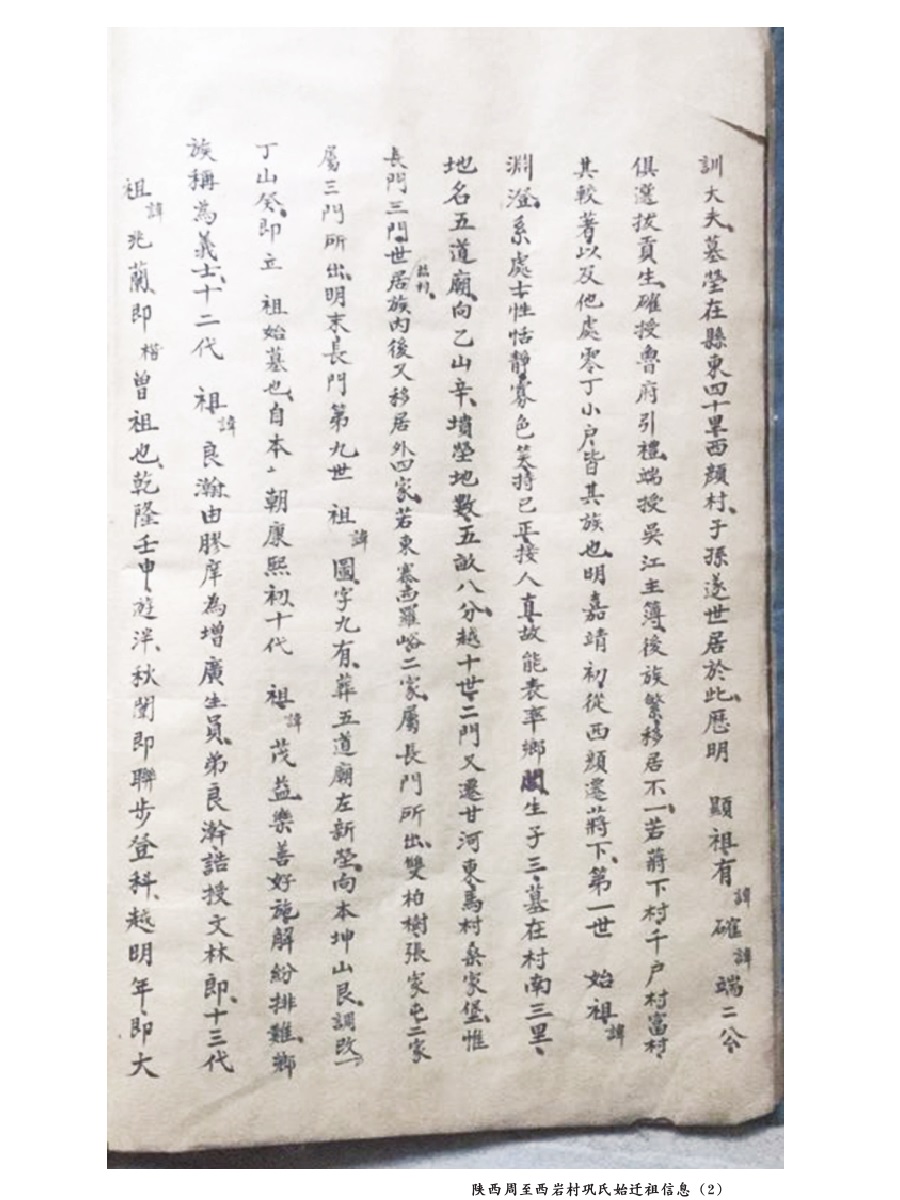 訓大夫、墓塋在縣東四十里西顔村、子孫遂世居於此、歷明 顯祖有諱確諱端二公、
俱選拔貢生、確授魯府引禮、端授吳江主簿、後族繁移居不一、若蔣下村千户村富村
其較著以及他處零丁小户、皆其族也、明嘉靖初從西顔遷蔣下、第一世 始祖諱
淵澄、系處士、性恬靜、寡色笑、持己正、接人真、故能表率鄉閭、生子三、墓在村南三里、
地名五道廟、向乙山辛、墳塋地數、五畝八分、越十世、二門又遷甘河東馬村桑家堡、惟
長門三門世居村、族内後又移居外四家、若東寨西羅峪二家、屬長門所出、雙柏樹張家屯二家
屬三門所出、明末長門第九世 祖諱圖、字九有、葬五道廟左新塋、向本坤山艮、調改
丁山癸、即立 祖始墓也、自本朝康熙初、十代 祖諱茂益、樂善好施、解紛排難、鄉
族稱為義士、十二代 祖諱良瀚、由膠庠為增廣生員、弟良瀚誥授文林郎、十三代
祖諱兆蘭、即楷曾祖也、乾隆壬申遊泮、秋闈即聯步登科、越明年、即大
陕西周至西岩村巩氏始迁祖信息（2）